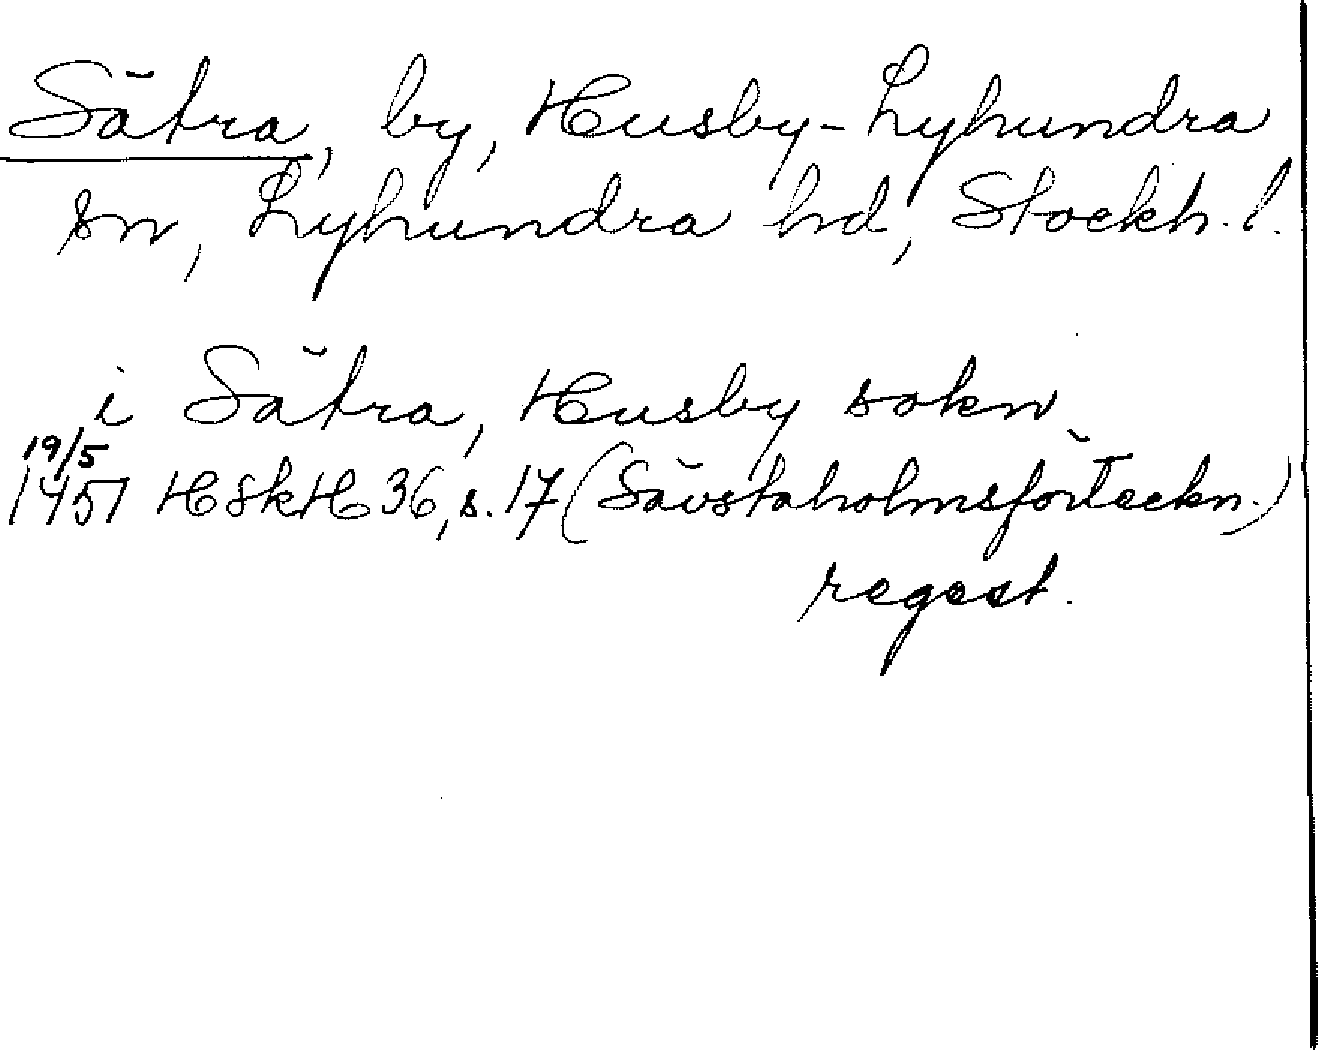 Sätra, by, Husby-Lyhundra
sn, Lyhundra hd, Stockh. l.
i Sätra, Husby sokn
19/5
1451 HSkH 36, s. 17 (Sävstaholmsförteckn.)
regest.